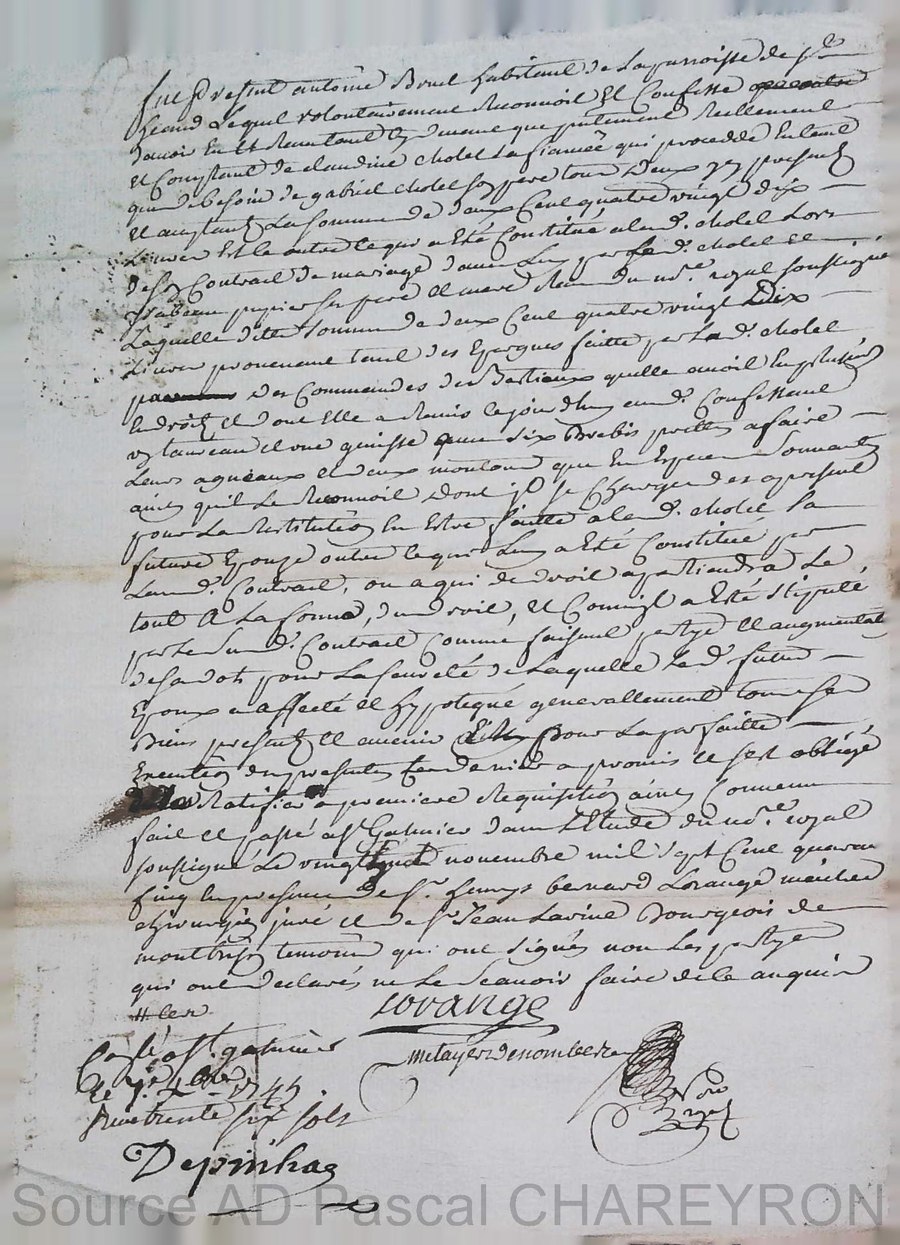 fut present antoine Bruel habitant de La parroisse de st
heand Lequel volontairement Reconnoit Et Confesse
d'avoir Eu Et Receu tant cy devant que presentement Reellement
Et Comptant de claudine cholet Sa fiancée qui procedde En tant
que de besoin de gabriel cholet Son pere tous deux icy presents
Et acceptants La Somme de deux Cent quatre vingt dix
Livres Et Ce outre Ce qui a Eté Constitué a lad. cholet Lors
de son Contrat de mariage d'avec Luy par led. cholet Et
ysabeau papier Ses pere Et mere Receu du no.re royal soussigné
Laquelle ditte Somme de deux Cent quatre vingt Dix
Livres provenant tant des Epargnes faitte par Lad. cholet
des Commandes des Bestiaux quelle avoit En plusieurs
Endroits Et dont Elle a Remis Cejourdhuy aud. Confessant
un taureau Et une genisse six Brebis prettes a faire
Leurs agneaux Et deux moutons que En Especes Sonnantes
ainsy quil Le Reconnoit Dont il Se Charge des apresent
pour La Restitution En Estre faitte a lad. cholet Sa
future Epouze outre Ce qui Luy a Eté Constitué par
Leurd. Contrat, ou a qui de droit apartiendra Le
tout A La forme, du droit, Et Comme il a Eté Stipulé
par Le Susd. Contrat Comme faisant partye Et augmentation
de Sa dot, pour La Seureté de Laquelle Led. futur
Epoux a affecté Et hypotequé generallement tous Ses
Biens presents Et avenir Pour La parfaitte
Execution des presentes Ce dernier a promis Et S'est obligé
Ratifier a premiere Requisition ainsy Convenu
fait Et passé a St Galmier dans L'Etude du no.re royal
soussigné Le vingt novembre mil Sept Cent quarante
Cinq En presence de Sr. bernard Lorange maitre
chirurgien juré Et de Sr Jean Lavine Bourgeois de
montbrison temoins qui ont Signés non Les partyes
qui ont declarés ne Le Scavoir faire de Ce Enquis
Lorange
metayer denombrea
Collé a St. galmier
le 7e. Xbre 1745
Receu trente six sols
Depinhac
Source AD Pascal CHAREYRON